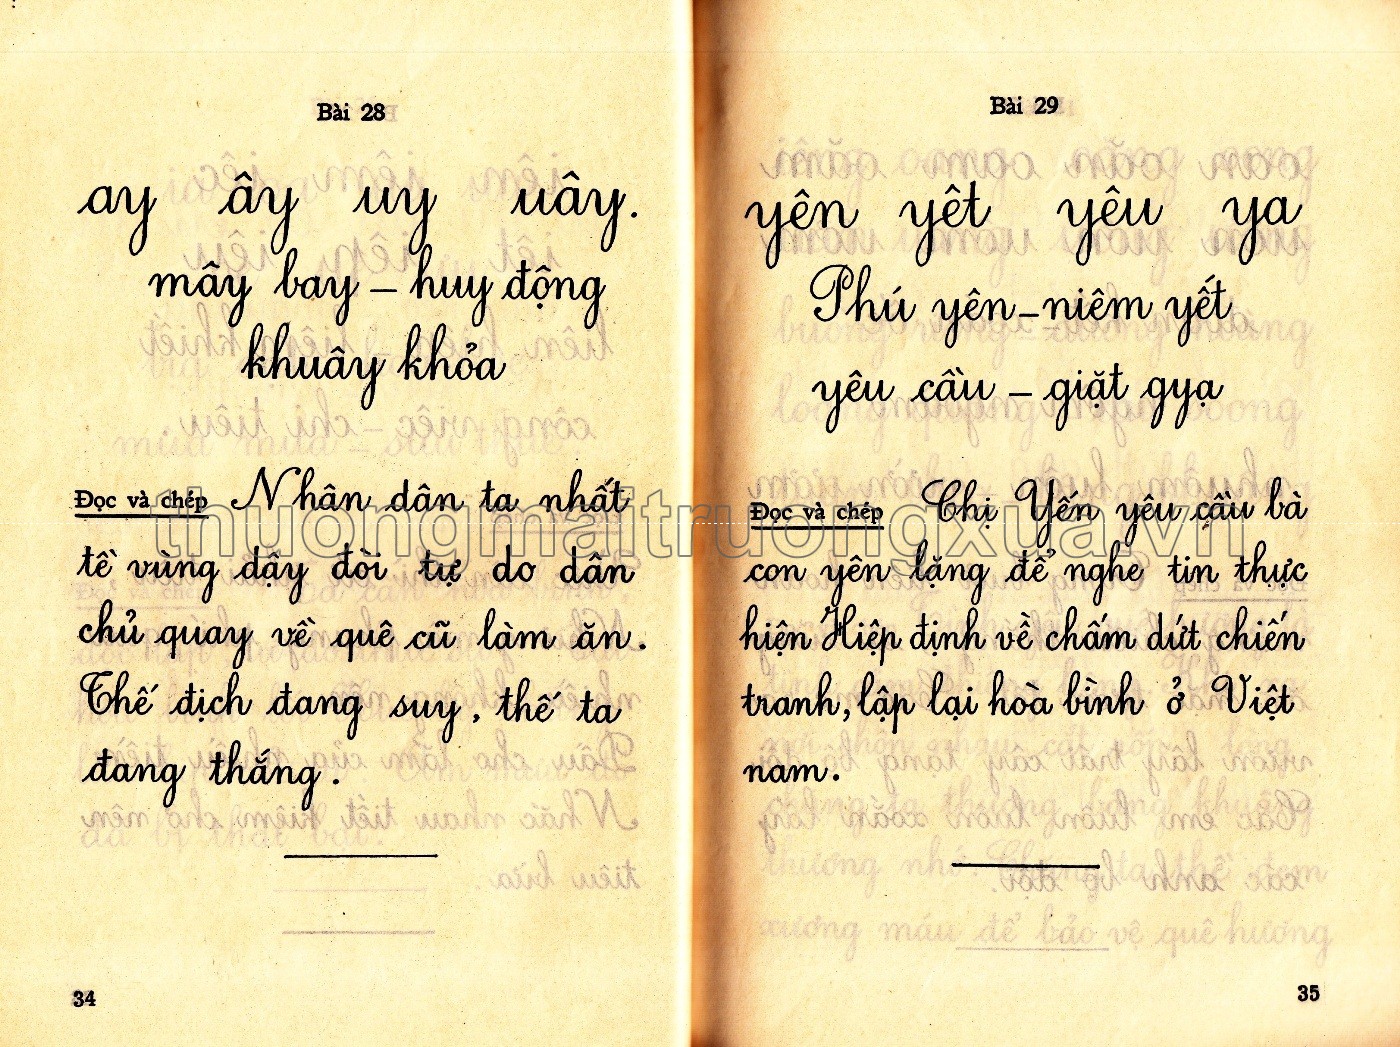 Bài 28
ay ây uy uây.
mây bay – huy động
khuây khỏa
Đọc và chép Nhân dân ta nhất
tề vùng dậy đòi tự do dân
chủ quay về quê cũ làm ăn.
Thế địch đang suy, thế ta
đang thắng.
34
Bài 29
yên yêt yêu ya
Phú yên – niêm yết
yêu cầu – giặt gyạ
Đọc và chép Chị Yến yêu cầu bà
con yên lặng để nghe tin thực
hiện Hiệp định về chấm dứt chiến
tranh, lập lại hoà bình ở Việt
nam.
35
thuongmaitruongxua.vn